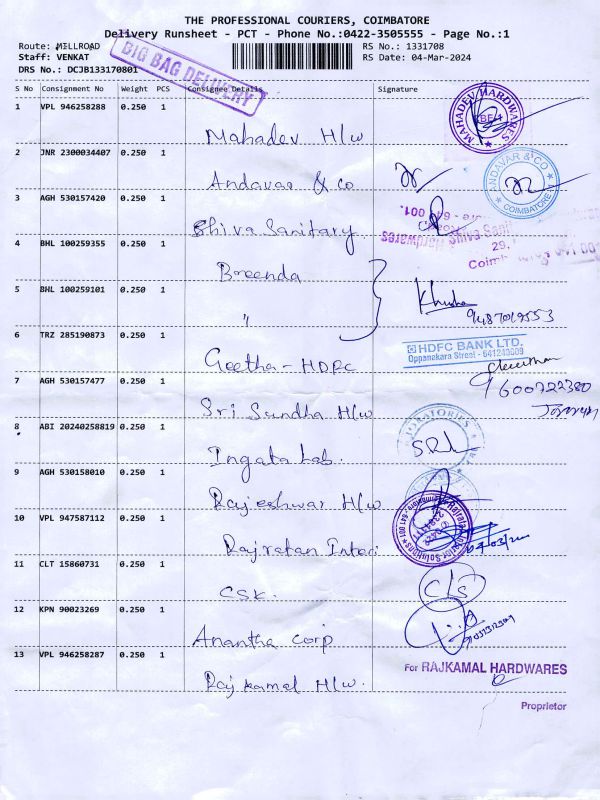 THE PROFESSIONAL COURIERS, COIMBATORE
Delivery Runsheet - PCT - Phone No.:0422-3505555 - Page No.:1
Route: MILLROAD RS No.: 1331708
Staff: VENKAT RS Date: 04-Mar-2024
DRS No.: DCJB133170801
BIG BAG DELIVERY
S No Consignment No Weight PCS Consignee Details Signature
1 VPL 946258288 0.250 1
Mahadev H/w
MAHADEV HARDWARES
2 JNR 2300034407 0.250 1
Andavar & Co
ANDAVAR & CO
COIMBATORE
3 AGH 530157420 0.250 1
Shiva Sanitary
4 BHL 100259355 0.250 1
Breenda
5 BHL 100259101 0.250 1
"
9487019553
6 TRZ 285190873 0.250 1
Geetha - HDFC
HDFC BANK LTD.
Oppanakara Street - 641240009
7 AGH 530157477 0.250 1
9600722380
Sri Sandha H/w
8 ABI 20240258819 0.250 1
Ingata Lab.
9 AGH 530158010 0.250 1
Rajeshwar H/w
10 VPL 947587112 0.250 1
Rajratan Interi
11 CLT 15860731 0.250 1
CSK.
12 KPN 90023269 0.250 1
Anantha Corp
13 VPL 946258287 0.250 1
Raj kamal H/w.
For RAJKAMAL HARDWARES
Proprietor